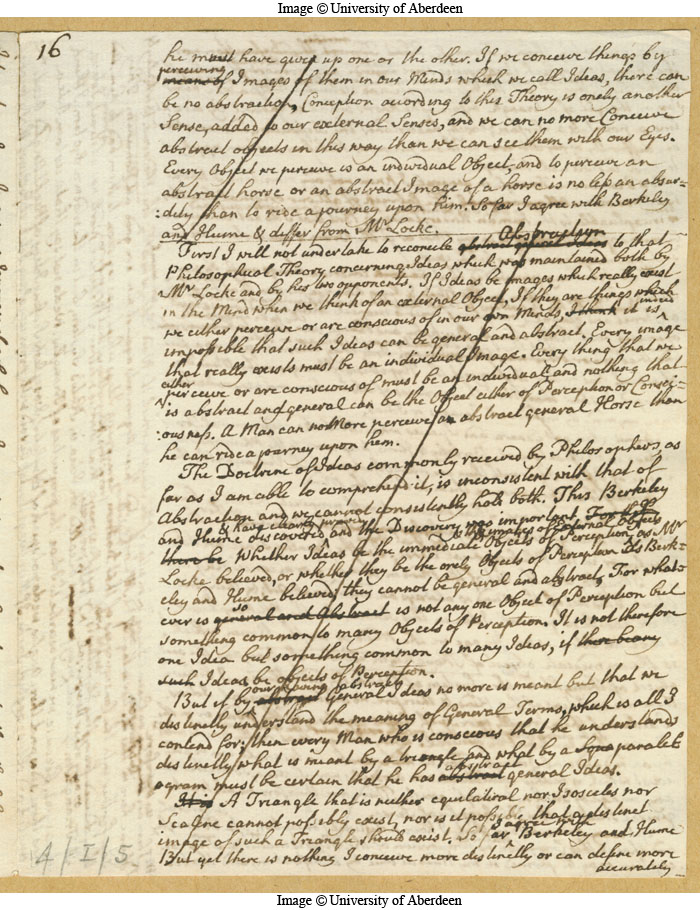 Image © University of Aberdeen
16
he must have given up one or the other. If we conceive things by
perceiving
means of Images of them in our Minds which we call Ideas, there can
be no abstraction, Conception according to this Theory is onely another
Sense, added to our external Senses, and we can no more Conceive
abstract objects in this way than we can see them with our Eyes.
Every Object we perceive is an individual Object, and to perceive an
abstract horse or an abstract Image of a horse is no less an absur-
:dity than to ride a journey upon him. So far I agree with Berkeley
and Hume & differ from Mr Locke.
Abstraction
First I will not undertake to reconcile abstract general Ideas to that
Philosophical Theory concerning Ideas which was maintained both by
Mr Locke and by his two opponents. If Ideas be images which really exist
in the Mind when we think of an external Object, If they are things which
we either perceive or are conscious of in our own Minds, I think it is indeed
impossible that such Ideas can be general and abstract. Every image
that really exists must be an individual Image. Every thing that we
either
perceive or are conscious of must be an individual and nothing that
is abstract and general can be the Object either of Perception or Consci-
:ousness. A Man can no more perceive an abstract general Horse than
he can ride a journey upon him.
The Doctrine of Ideas commonly received by Philosophers, as
far as I am able to comprehend it, is inconsistent with that of
Abstraction and we cannot consistently hold both. This Berkeley
have clearly proved
and Hume discovered and the Discovery was important. For if
or the images of External Objects
there be Whether Ideas be the immediate Objects of Perception, as Mr
Locke believed, or whether they be the onely Objects of Perception as Berk-
eley and Hume believed, they cannot be general and abstract, For what-
so
ever is general and Abstract is not any one Object of Perception but
something common to many Objects of Perception. It is not therefore
one Idea but something common to many Ideas, if there be any
such Ideas be objects of Perception.
our having abstract
But if by abstract General Ideas no more is meant but that we
distinctly understand the meaning of General Terms, which is all I
contend for; then every Man who is conscious that he understands
distinctly what is meant by a triangle and what by a parallel
abstract
ogram must be certain that he has abstract general Ideas.
It is A Triangle that is neither equilateral nor Isosceles nor
Scalene cannot possibly exist, nor is it possible that a distinct
I agree with
image of such a Triangle should exist. So far Berkeley and Hume
But yet there is nothing I conceive more distinctly or can define more
accurately
4/I/5
Image © University of Aberdeen